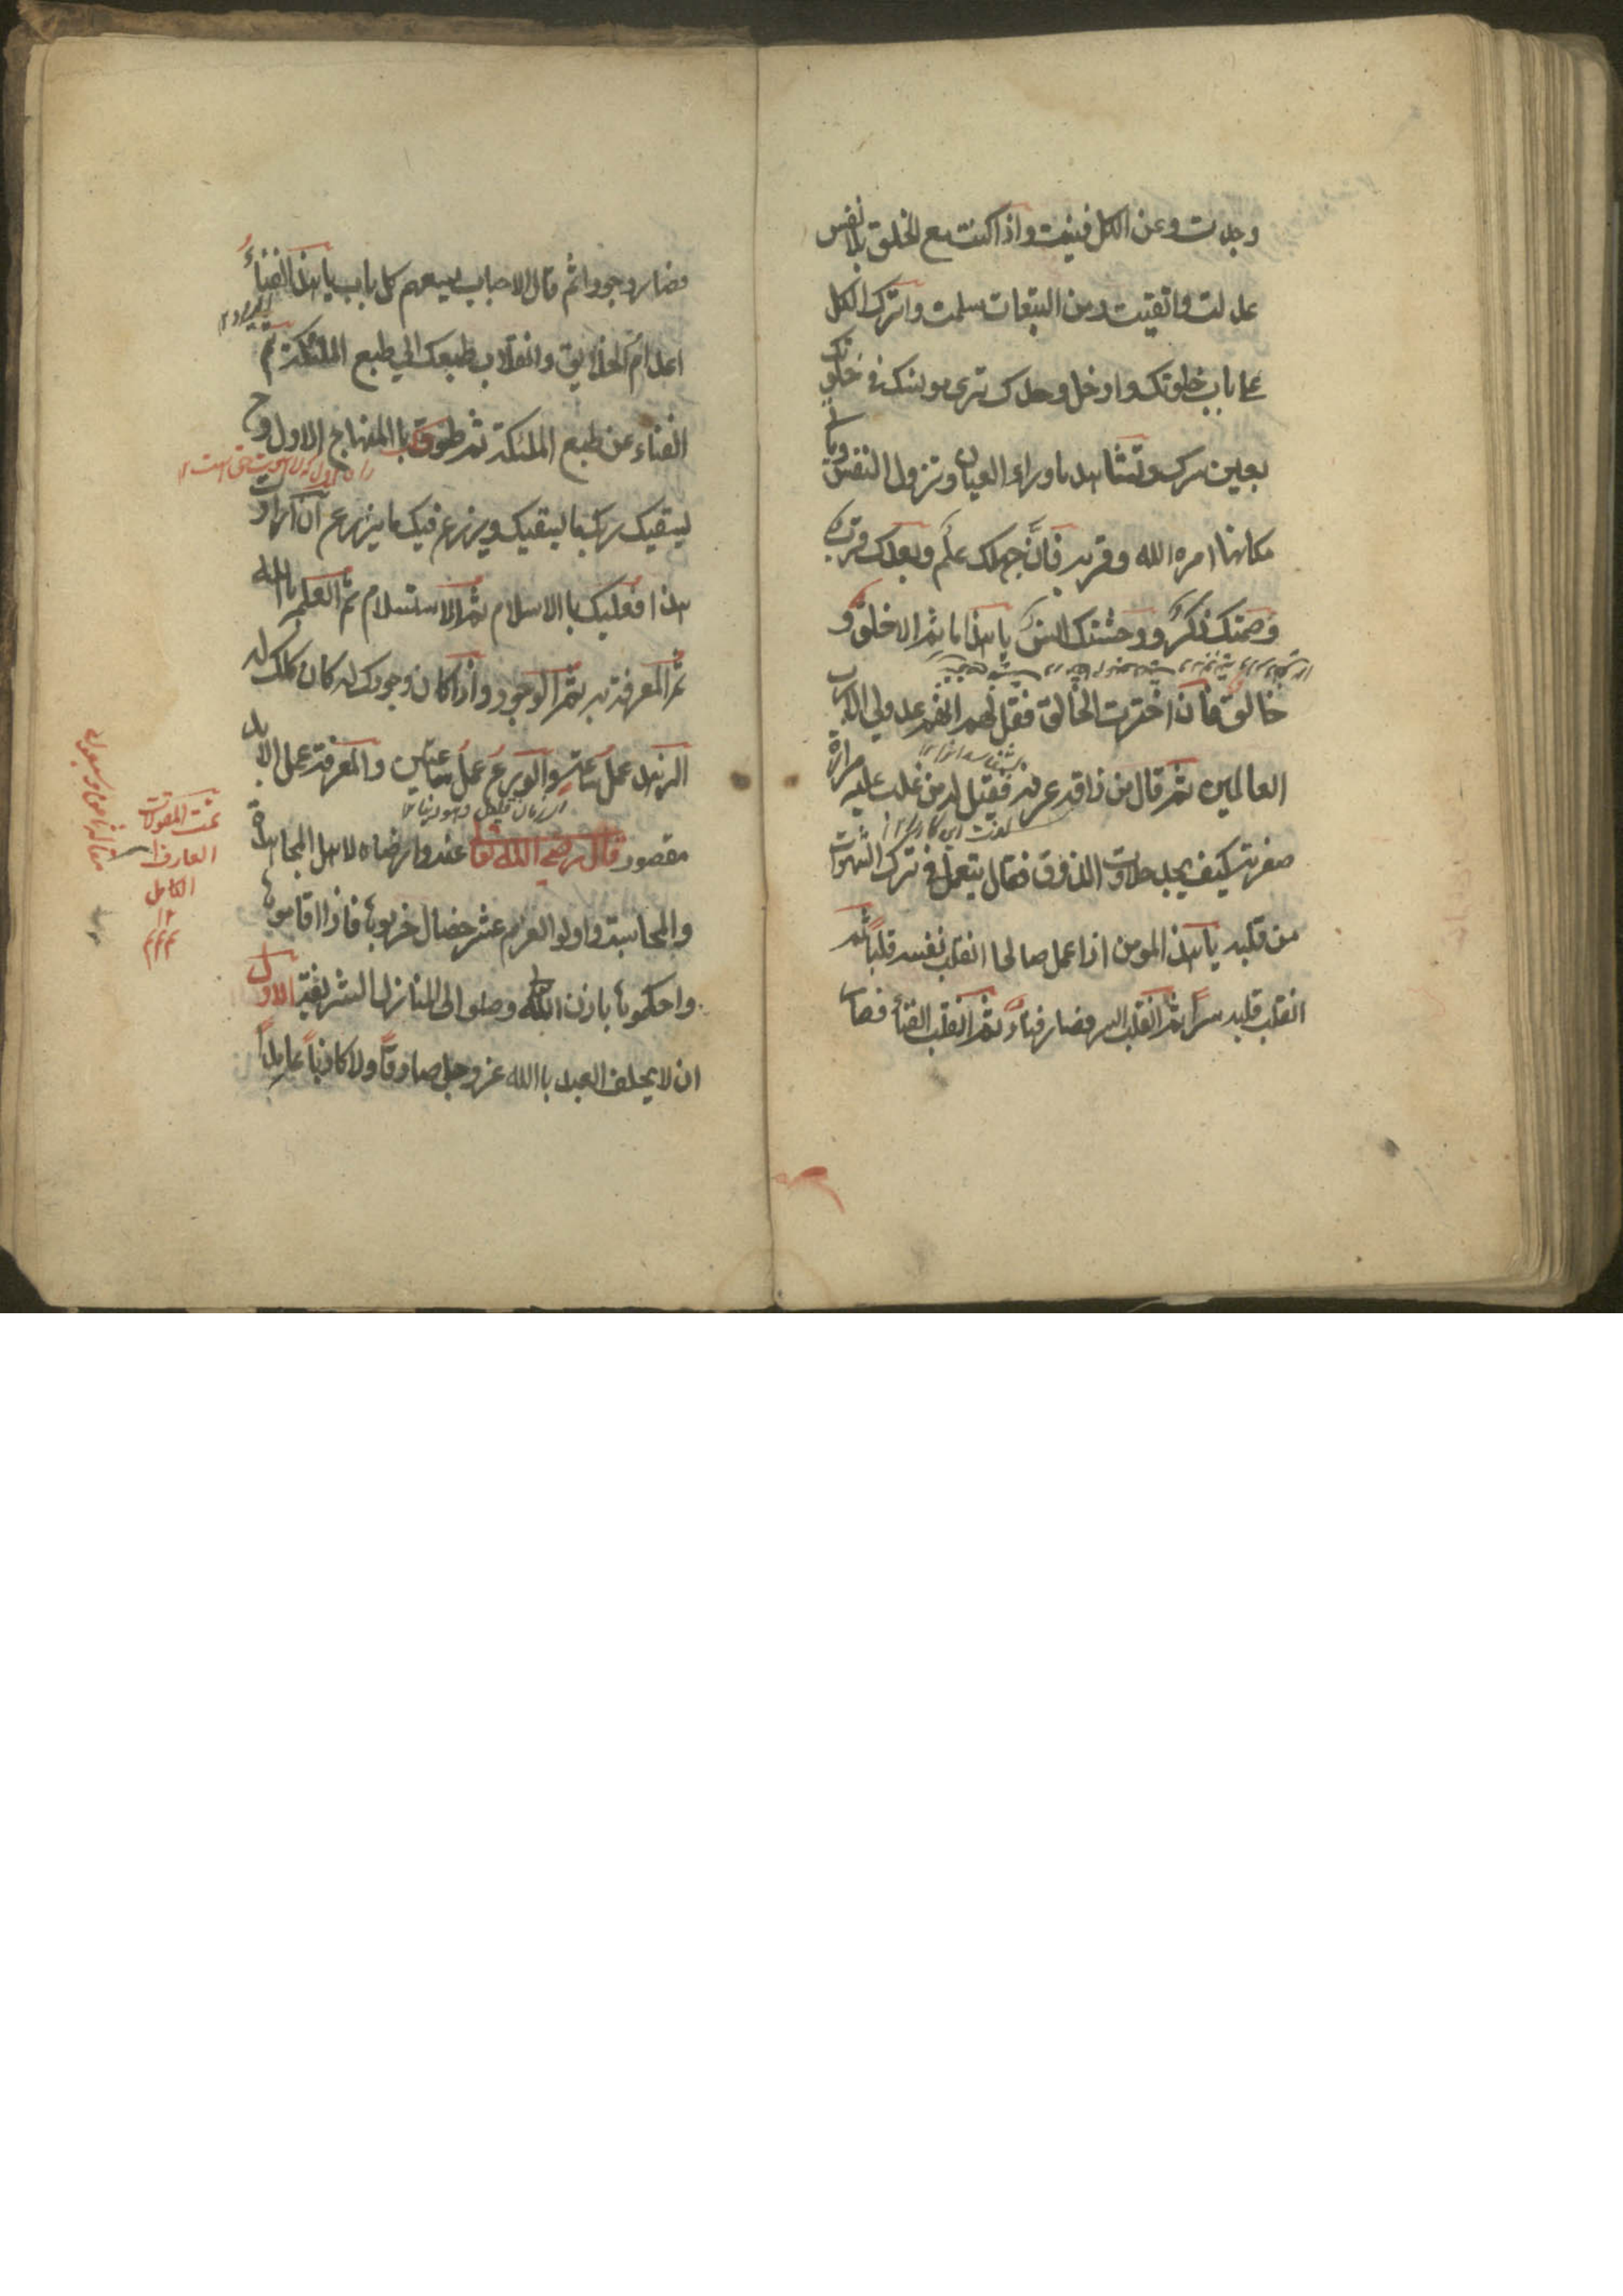 وجدت وعن الكل فنيت واذا كنت مع الخلق بلا نفس
عدلت واتقيت ومن التبعات سلمت واترك الكل
على باب خلوتك وادخل وحدك ترى مونسك فى خلوتك
بعين سرك وتشاهد ماوراء العيان وتزول النفس وياتى
مكانها امر الله وقربه فاذن جهلك علم وبعدك قرب
وصمتك ذكر ووحشتك انس يا هذا ما ثم الا خلق و
خالق فان اخترت الخالق فقل لهم انهم عدو لى الا رب
العالمين ثم قال من ذاقه عرفه فقيل له من غلبت عليه مرارة
صفرته كيف يجد حلاوت الذوق فقال يتعمل فى ترك الشهوات
من قلبه يا هذا المومن اذا عمل صالحا انقلب نفسه قلباً ثم
انقلب قلبه سراً ثم انقلب السر فصار فناءً ثم انقلب الفناء فصار
فصار وجودا ثم قال الاحباب يسعهم كل باب يا هذا الفناءُ
اعدام الخلايق وانقلاب طبعك الى طبع الملئكة ثم
الفناء عن طبع الملئكة ثم لحوقك باالمنهاج الاول وح
يسقيك ربك ما يسقيك ويزرع فيك ما يزرع ان اردت
هذا فعليك باالاسلام ثم الاستسلام ثم العلم باالله
ثم المعرفة به ثم الوجود واذا كان وجودك له كان كلك له
الزهد عمل ساعة والورع عمل ساعتين والمعرفة عمل الابد
مقصود قال رضى الله تعا عنه وارضاه لاهل المجاهدة
والمحاسبة واولو العزم عشر خصال جربوها فاذا اقاموها
واحكموها باذن الله وصلوا الى المنازل الشريفة الاول
ان لا يحلف العبد باالله عز وجل صادقاً ولا كاذباً عامداً
تمت المقولات
العارف
الكامل
١٢